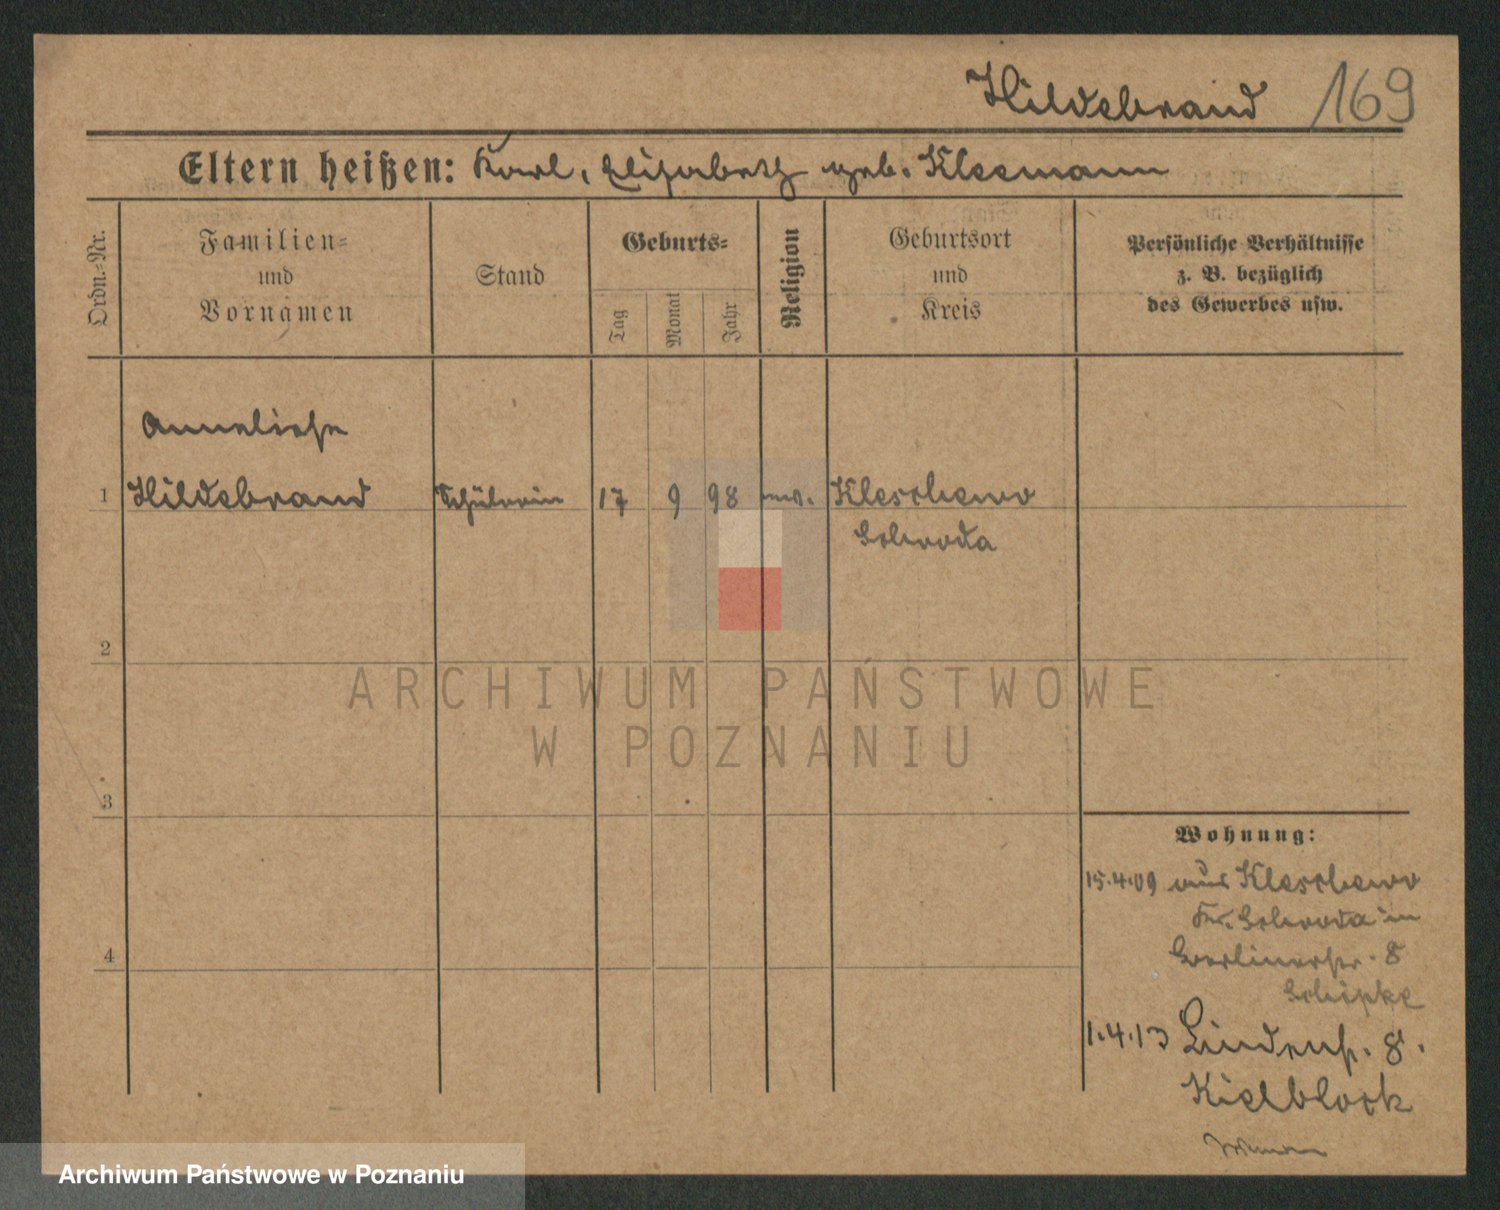 Hildebrand 169
Eltern heißen: Karl, Elisabeth geb. Kleemann
Ordn.=Nr.
Familien=
und
Vornamen
Stand
Geburts=
Tag
Monat
Jahr
Religion
Geburtsort
und
Kreis
Persönliche Verhältnisse
z. B. bezüglich
des Gewerbes usw.
Anneliese
1 Hildebrand Schülerin 17 9 98 Kleschewo
Schroda
2
ARCHIWUM PAŃSTWOWE
W POZNANIU
3
Wohnung:
15.4.09 aus Kleschewo
Kr. Schroda in
Berlinerstr. 8
Schipke
4
1.4.13 Lindenst. 8.
Kielblock
Archiwum Państwowe w Poznaniu